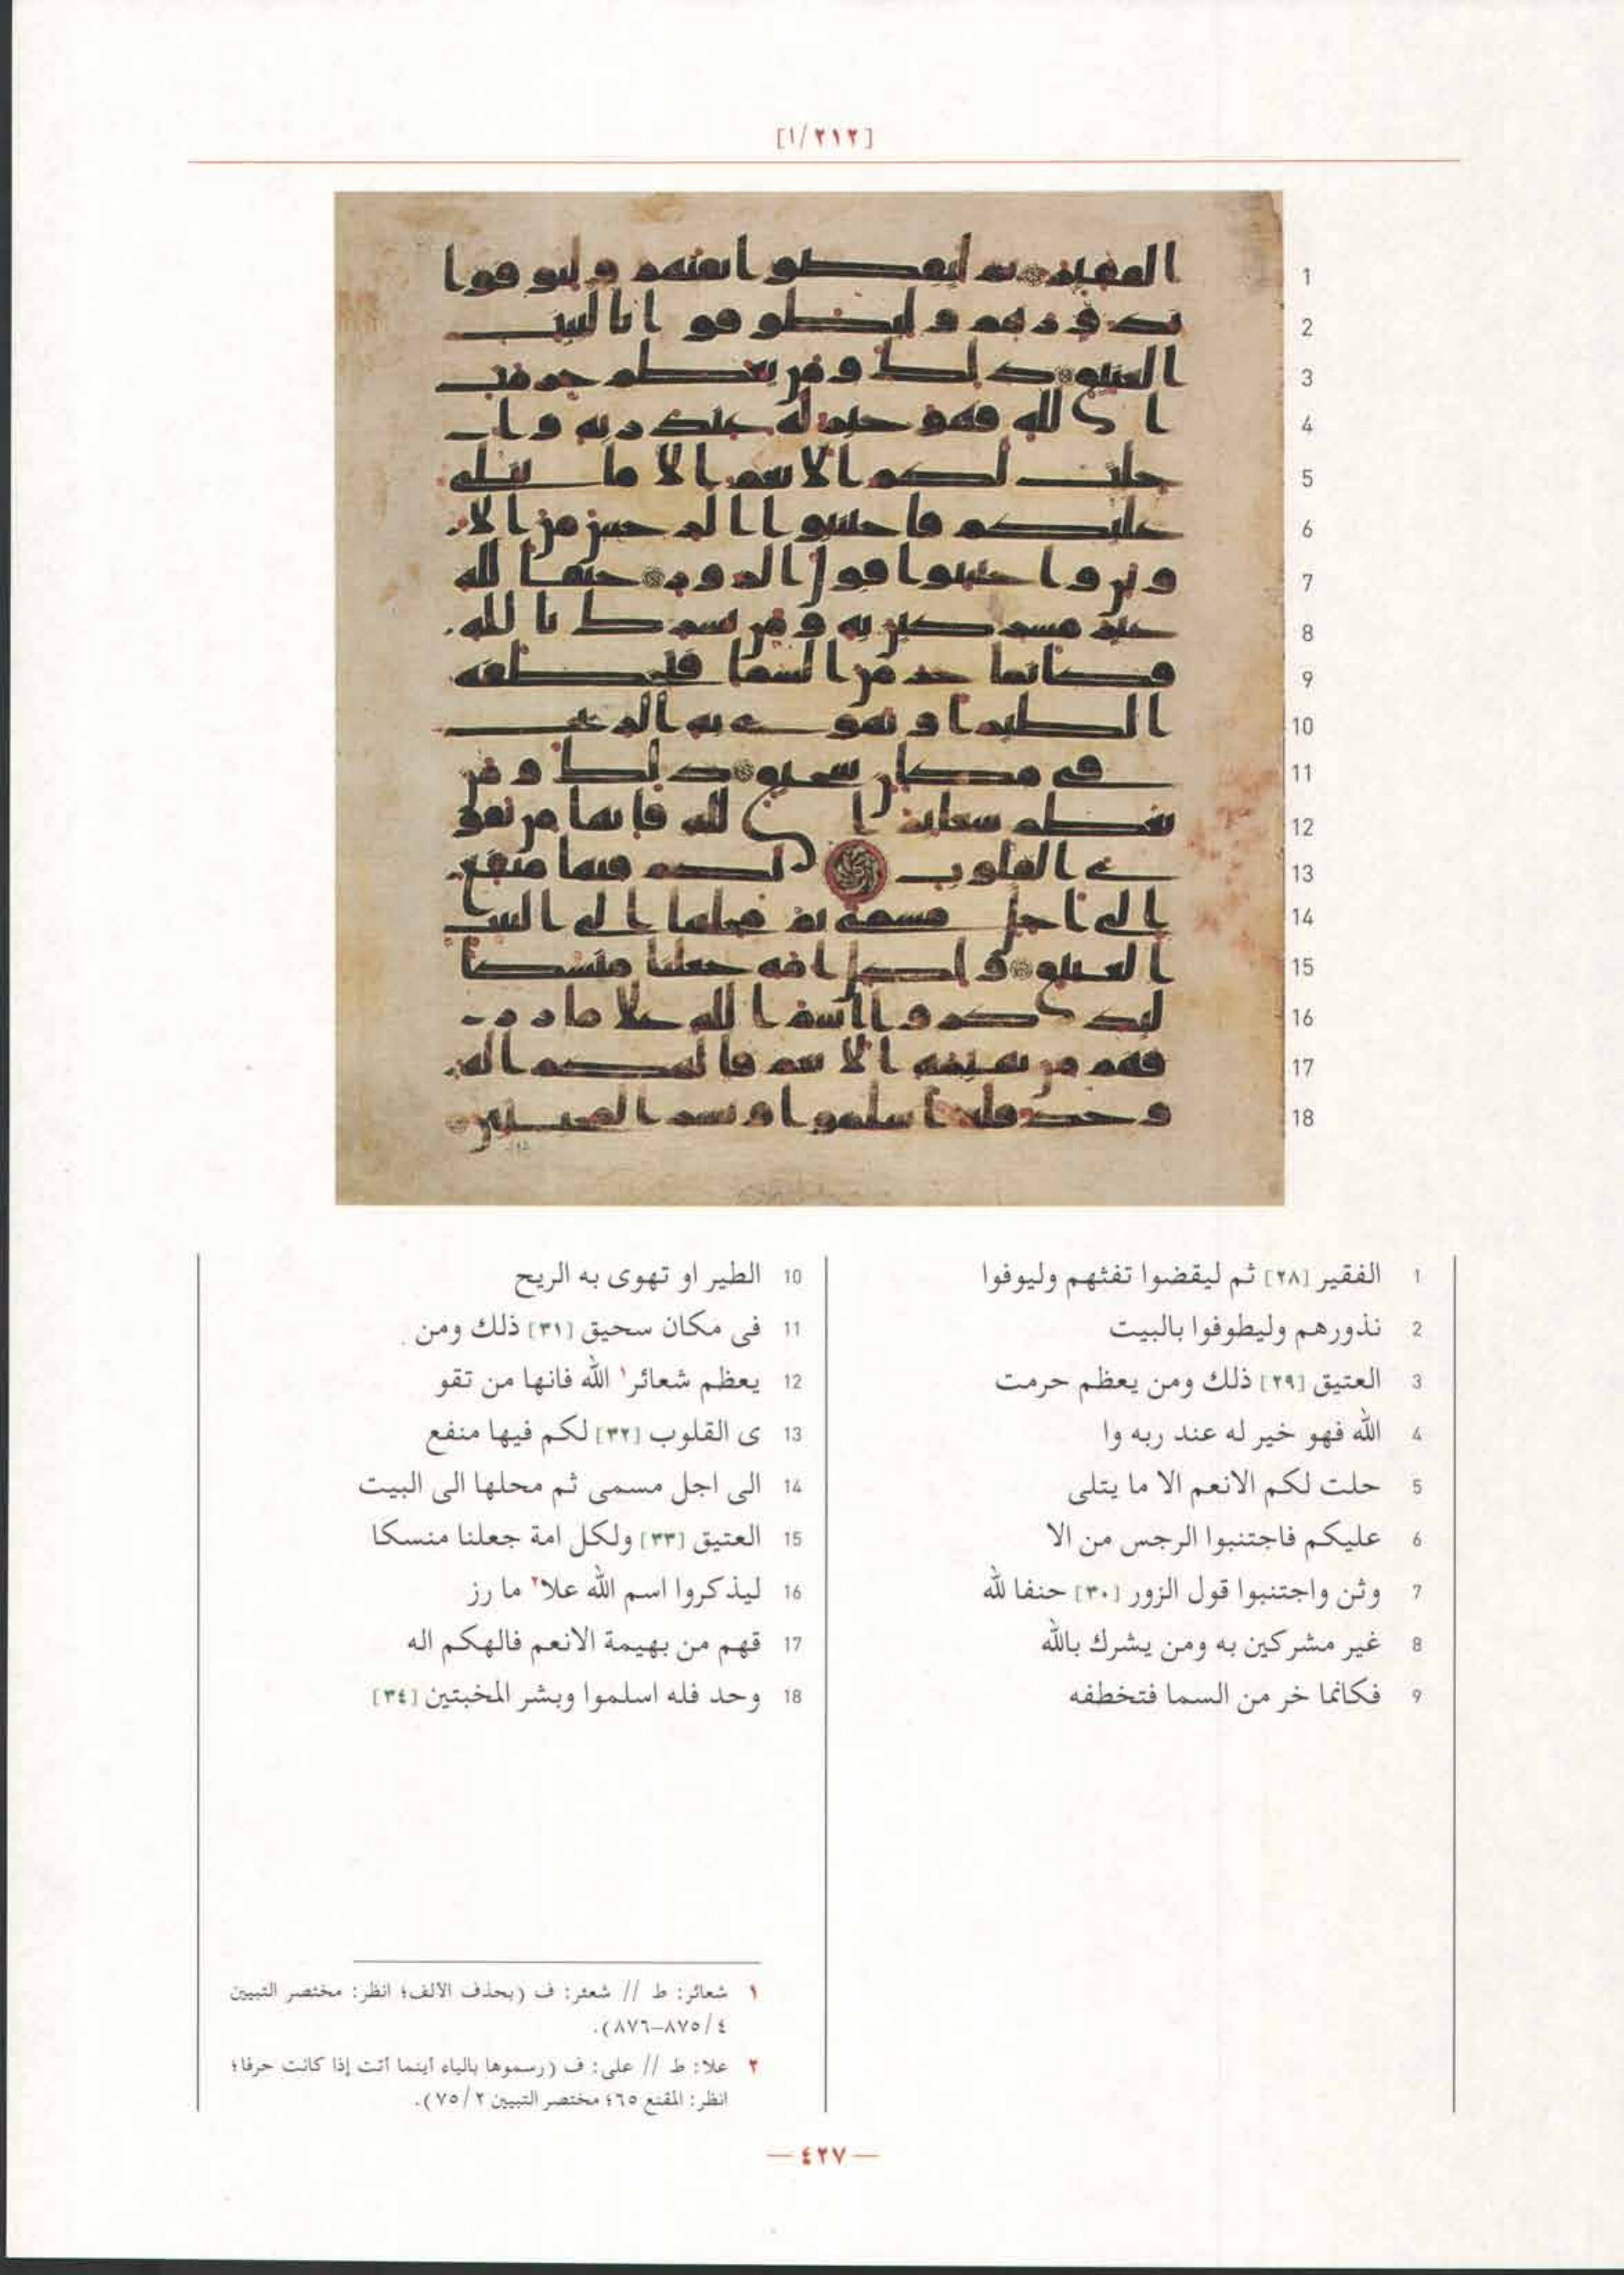 [٢١٢/١]
1 الفقير [٢٨] ثم ليقضوا تفثهم وليوفوا
2 نذورهم وليطوفوا بالبيت
3 العتيق [٢٩] ذلك ومن يعظم حرمت
4 الله فهو خير له عند ربه وا
5 حلت لكم الانعم الا ما يتلى
6 عليكم فاجتنبوا الرجس من الا
7 وثن واجتنبوا قول الزور [٣٠] حنفا لله
8 غير مشركين به ومن يشرك بالله
9 فكانما خر من السما فتخطفه
10 الطير او تهوى به الريح
11 فى مكان سحيق [٣١] ذلك ومن
12 يعظم شعائر١ الله فانها من تقو
13 ى القلوب [٣٢] لكم فيها منفع
14 الى اجل مسمى ثم محلها الى البيت
15 العتيق [٣٣] ولكل امة جعلنا منسكا
16 ليذكروا اسم الله علا٢ ما رز
17 قهم من بهيمة الانعم فالهكم اله
18 وحد فله اسلموا وبشر المخبتين [٣٤]
١ شعائر: ط // شعئر: ف (بحذف الألف؛ انظر: مختصر التبيين
٤/٨٧٥–٨٧٦).
٢ علا: ط // على: ف (رسموها بالياء أينما أتت إذا كانت حرفا؛
انظر: المقنع ٦٥؛ مختصر التبيين ٢/٧٥).
— ٤٢٧ —